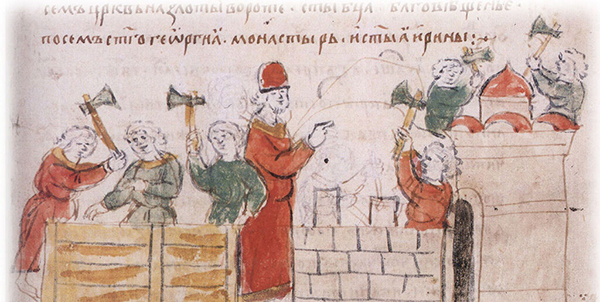 семъ црквь на злоты вороте . сты бца . благовѣщенье .
посемъ стго геѡргиꙗ . монастырь . и стыꙗ ирины :